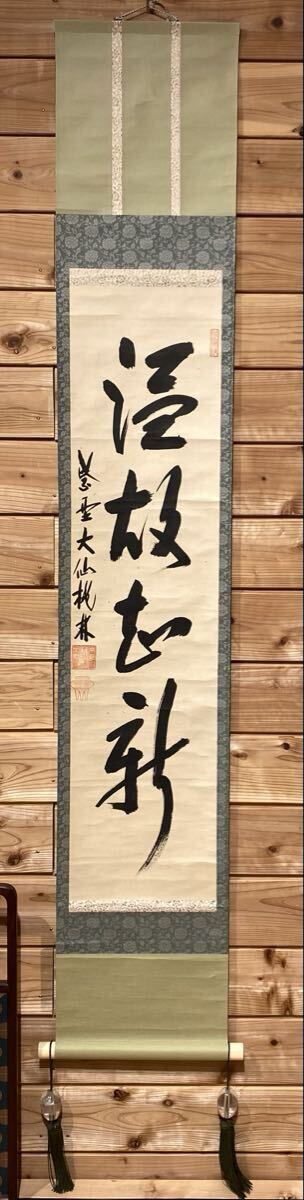 温故知新
慈雲大仙桃林